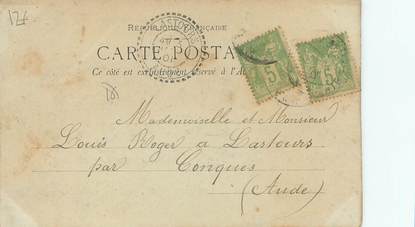 12f
RÉPUBLIQUE FRANÇAISE
CARTE POSTA
Ce côté est exclusivement réservé à l'A
5
5
Mademoiselle et Monsieur
Louis Roger a Lastours
par Conques
(Aude)